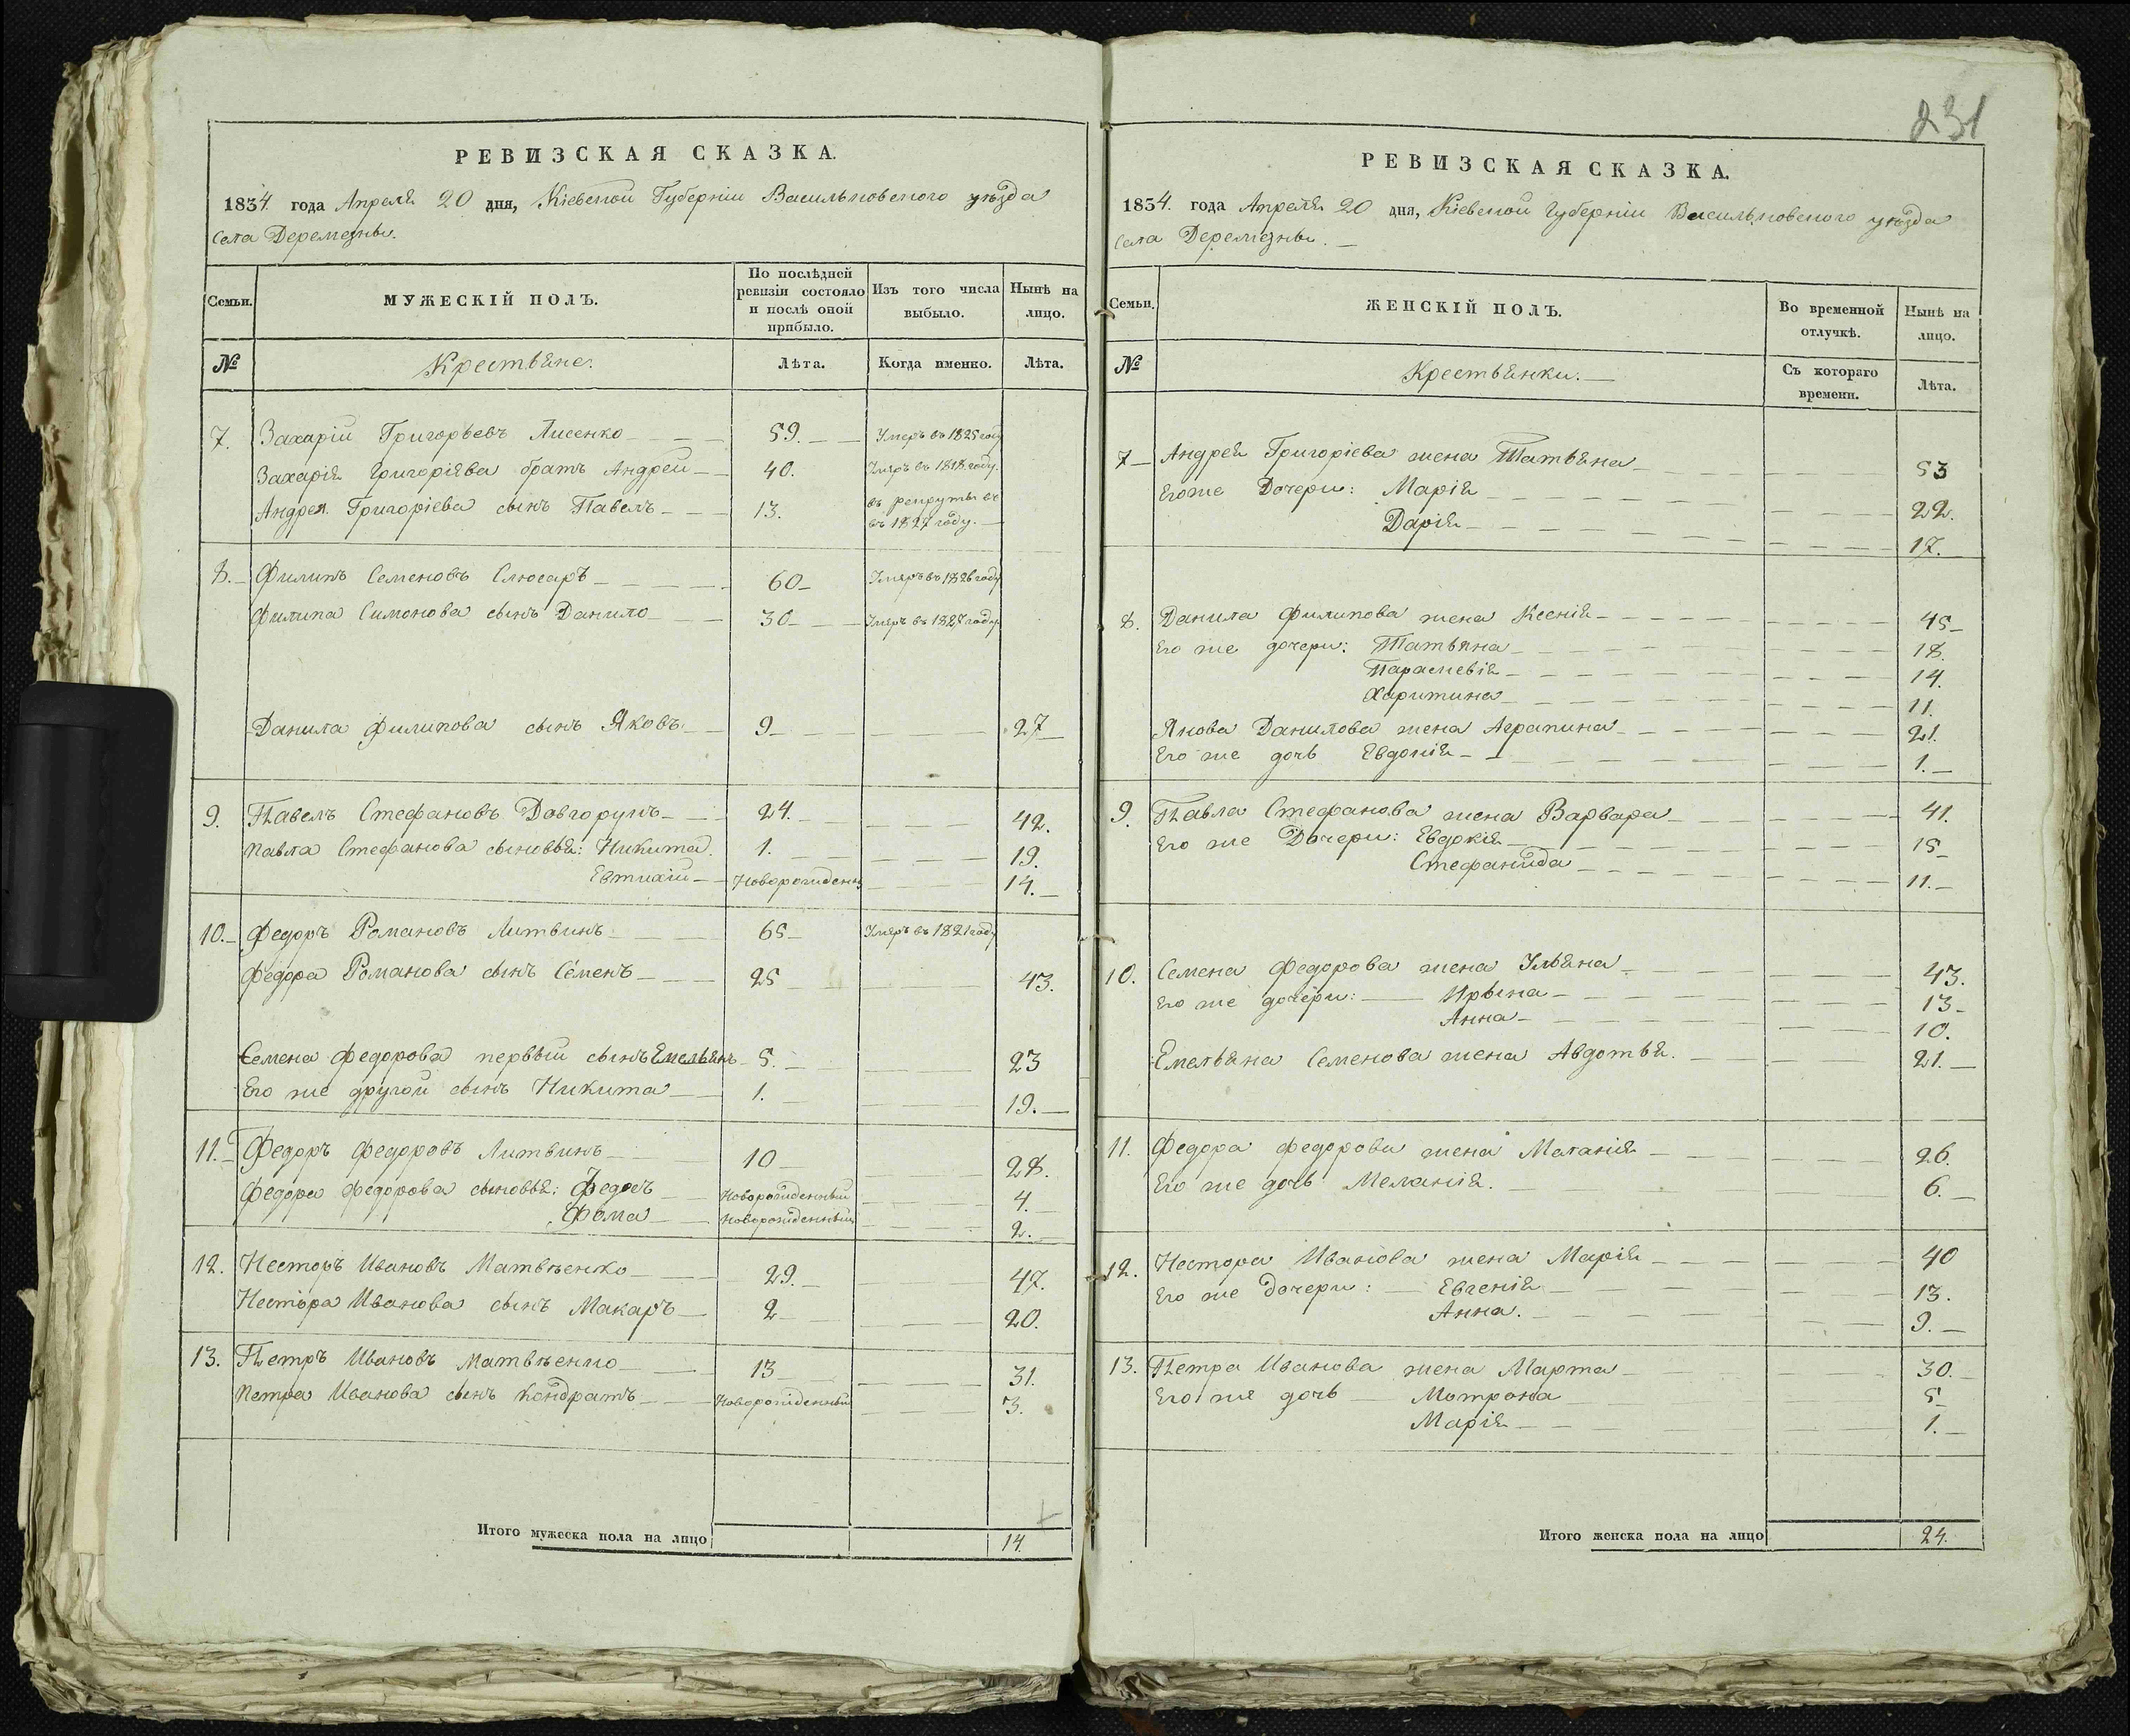 РЕВИЗСКАЯ СКАЗКА.
1834 года Апреля 20 дня, Кіевской Губерніи Васильковскаго уѣзда
Села Деремезны.
Семьи.
МУЖЕСКІЙ ПОЛЪ.
По послѣдней ревизіи состояло и послѣ оной прибыло.
Изъ того числа выбыло.
Нынѣ на лицо.
№
Крестьяне.
Лѣта.
Когда именно.
Лѣта.
7. Захарій Григорьевъ Лисенко 59. Умеръ въ 1825 году
Захарія Григоріева братъ Андрей 40. Умеръ въ 1818 году.
Андрея Григоріева сынъ Павелъ 13. въ рекруты въ
въ 1827 году.
8. Филипъ Семеновъ Слюсаръ 60 Умеръ въ 1826 году
Филипа Симонова сынъ Данило 30 Умеръ въ 1827 году
Данила Филипова сынъ Яковъ 9 27
9. Павелъ Стефановъ Довгорукъ 24. 42.
Павла Стефанова сыновья: Никита. 1. 19.
Евтихій Новорожденъ 14.
10. Федоръ Романовъ Литвинъ 65 Умеръ въ 1821 году
Федора Романова сынъ Семенъ 25 43.
Семена Федорова первый сынъ Емельянъ 5. 23
Его же другой сынъ Никита 1. 19.
11. Федоръ Федоровъ Литвинъ 10 28.
Федора Федорова сыновья: Новорожденный 4.
Фома Новорожденный 2.
12. Несторъ Ивановъ Матвѣенко 29. 47.
Нестора Иванова сынъ Макаръ 2 20.
13. Петръ Ивановъ Матвѣенко 13 31.
Петра Иванова сынъ Кондратъ Новорожденный 3.
Итого мужеска пола на лицо 14.
231
РЕВИЗСКАЯ СКАЗКА.
1834 года Апреля 20 дня, Кіевской Губерніи Васильковскаго уѣзда
Села Деремезны.
Семьи.
ЖЕНСКІЙ ПОЛЪ.
Во временной отлучкѣ.
Нынѣ на лицо.
№
Крестьянки.
Съ котораго времени.
Лѣта.
7 Андрея Григоріева жена Татьяна 53
Его же Дочери: Марія 22.
Дарія 17.
8. Данила Филипова жена Ксенія 45
Его же дочери: Татьяна 18.
Параскевія 14.
Харитина 11.
Якова Данилова жена Аграпина 21.
Его же дочь Евдокія 1.
9. Павла Стефанова жена Варвара 41.
Его же Дочери: Евдокія 15
Стефанида 11.
10. Семена Федорова жена Ульяна 43.
Его же дочери: Ирына 13
Анна 10.
Емельяна Семенова жена Авдотья. 21.
11. Федора Федорова жена Меланія 26.
Его же дочь Меланія. 6.
12. Нестора Иванова жена Марія 40
Его же дочери: Евгенія 13.
Анна. 9.
13. Петра Иванова жена Марта 30.
Его же дочь Мотрона 5
Марія 1.
Итого женска пола на лицо 24.